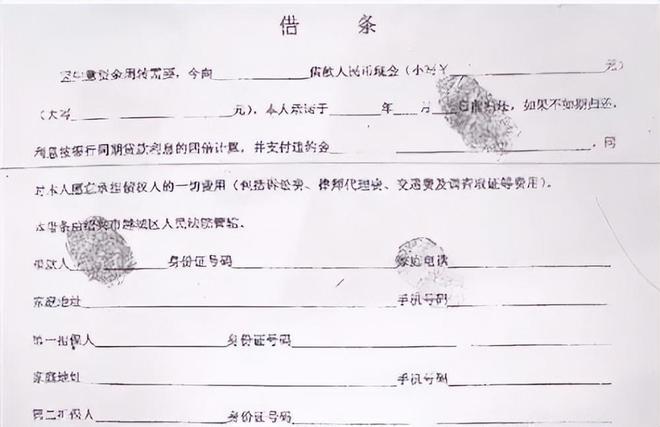 借 条
因生意资金周转需要，今向__________借款人民币现金（小写¥__________元）
（大写__________元），本人承诺于______年____月____日前归还，如果不如期归还，
利息按银行同期贷款利息的四倍计算，并支付违约金__________，同
时本人愿意承担债权人的一切费用（包括诉讼费、律师代理费、交通费及调查取证等费用）。
本借条由绍兴市越城区人民法院管辖。
借款人__________身份证号码__________家庭电话__________
家庭地址__________手机号码__________
第一担保人__________身份证号码__________
家庭地址__________手机号码__________
第二担保人__________身份证号码__________